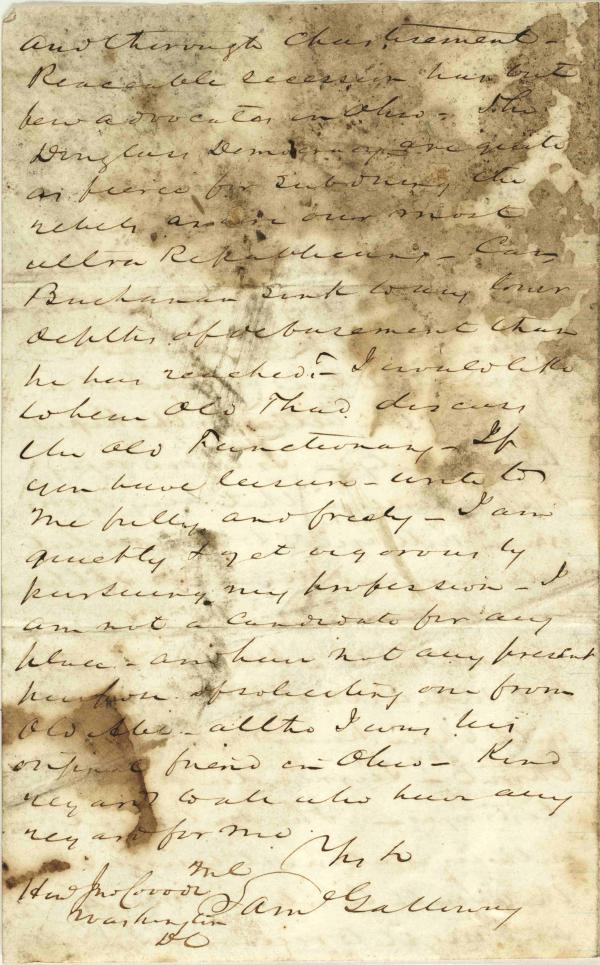 and thorough chastisement -
Peaceable secession has but
few advocates in Ohio - The
Douglass Democracy are quite
as fierce for subduing the
rebels as are our most
ultra Republicans - Can
Buchanan sink to any lower
depths of debasement than
he has reached? - I would like
to hear Old Thad. discuss
the Old Functionary - If
you have leisure - write to
me fully and freely - I am
quietly & yet vigorously
pursuing my profession - I
am not a candidate for any
place - and have not any present
purpose of soliciting one from
Old Abe - altho I was his
original friend in Ohio - Kind
regards to all who have any
regard for me
Yrs &c
Saml Galloway
Hon Jno Covode
Washington
DC